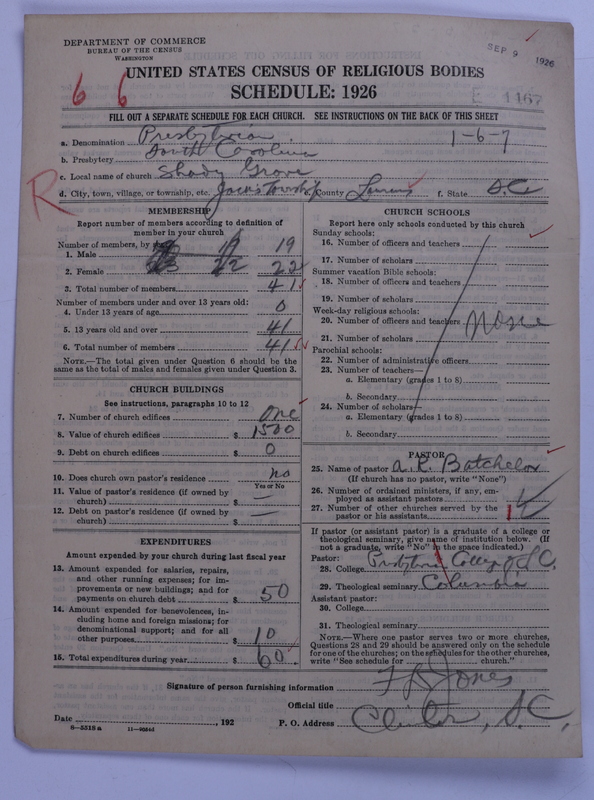 DEPARTMENT OF COMMERCE
BUREAU OF THE CENSUS
WASHINGTON
SEP 9 1926
6 6
UNITED STATES CENSUS OF RELIGIOUS BODIES
SCHEDULE: 1926
E 1167
FILL OUT A SEPARATE SCHEDULE FOR EACH CHURCH. SEE INSTRUCTIONS ON THE BACK OF THIS SHEET
a. Denomination Presbyterian 1-6-7
b. Presbytery South Carolina
c. Local name of church Shady Grove
R
d. City, town, village, or township, etc. Jacks Township e. County Laurens f. State S.C.
MEMBERSHIP
Report number of members according to definition of member in your church
Number of members, by sex:
1. Male 19
2. Female 22
3. Total number of members 41
Number of members under and over 13 years old:
4. Under 13 years of age 0
5. 13 years old and over 41
6. Total number of members 41
NOTE.—The total given under Question 6 should be the same as the total of males and females given under Question 3.
CHURCH BUILDINGS
See instructions, paragraphs 10 to 12
7. Number of church edifices One
8. Value of church edifices $ 1500
9. Debt on church edifices $ 0
10. Does church own pastor's residence no
Yes or No
11. Value of pastor's residence (if owned by church) $ —
12. Debt on pastor's residence (if owned by church) $ —
EXPENDITURES
Amount expended by your church during last fiscal year
13. Amount expended for salaries, repairs, and other running expenses; for improvements or new buildings; and for payments on church debt $ 50
14. Amount expended for benevolences, including home and foreign missions; for denominational support; and for all other purposes $ 10
15. Total expenditures during year $ 60
CHURCH SCHOOLS
Report here only schools conducted by this church
Sunday schools:
16. Number of officers and teachers
17. Number of scholars
Summer vacation Bible schools:
18. Number of officers and teachers
19. Number of scholars
Week-day religious schools:
20. Number of officers and teachers None
21. Number of scholars
Parochial schools:
22. Number of administrative officers
23. Number of teachers—
a. Elementary (grades 1 to 8)
b. Secondary
24. Number of scholars—
a. Elementary (grades 1 to 8)
b. Secondary
PASTOR
25. Name of pastor A. R. Batchelor
(If church has no pastor, write "None")
26. Number of ordained ministers, if any, employed as assistant pastors
27. Number of other churches served by the pastor or his assistants
If pastor (or assistant pastor) is a graduate of a college or theological seminary, give name of institution below. (If not a graduate, write "No" in the space indicated.)
Pastor:
28. College Presbyterian College of S.C.
29. Theological seminary Columbia
Assistant pastor:
30. College
31. Theological seminary
NOTE.—Where one pastor serves two or more churches, Questions 28 and 29 should be answered only on the schedule for one of the churches; on the schedules for the other churches, write "See schedule for church."
Signature of person furnishing information F L Jones
Official title
Date , 192
P. O. Address Clinton, S.C.
8—5518 a